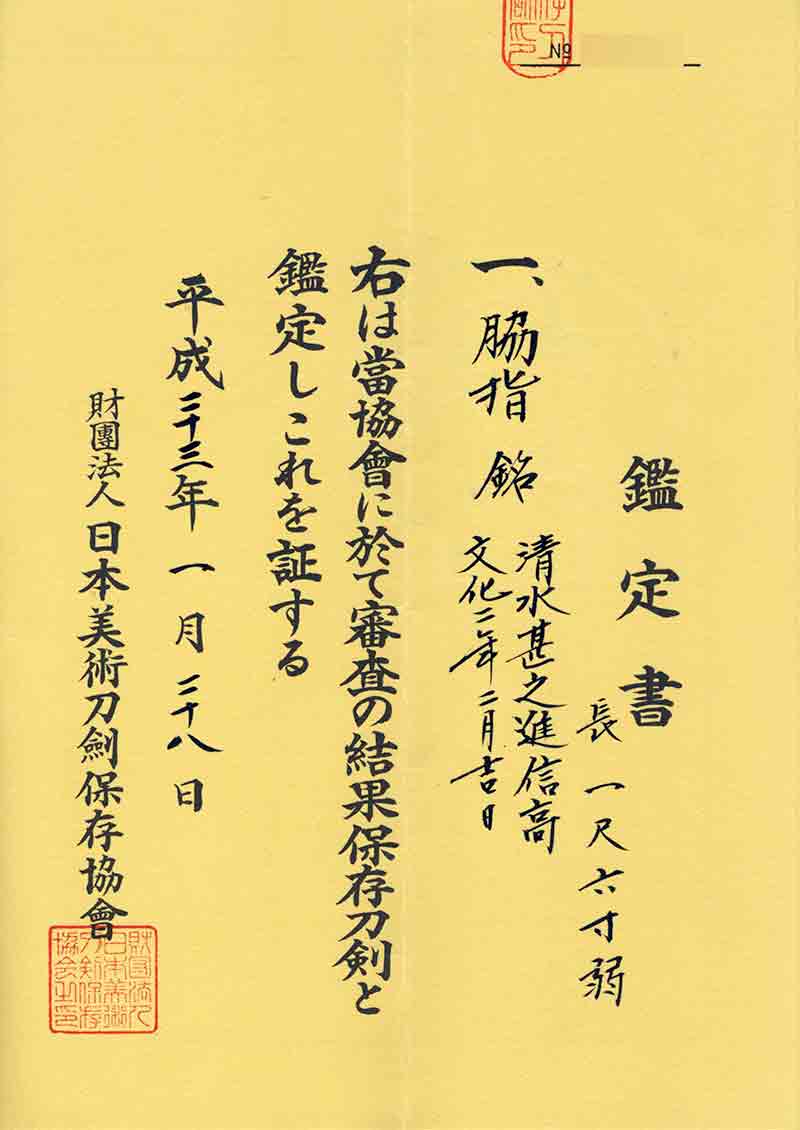 №
鑑定書
一、脇指 銘 清水甚之進信高
文化二年二月吉日
長 一尺六寸弱
右は當協會に於て審査の結果保存刀剣と
鑑定しこれを証する
平成二十三年 一月 二十八日
財團法人日本美術刀劍保存協會
財団法人
日本美術
刀剣保存
協会之印